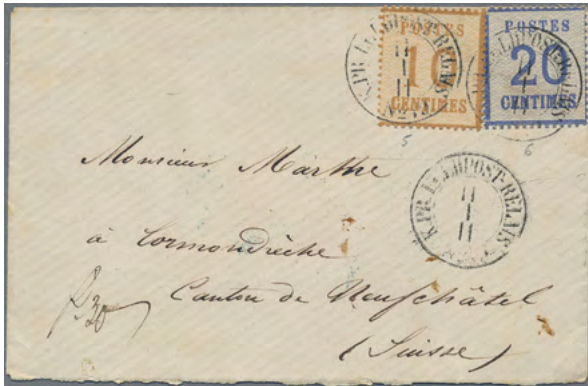 POSTES POSTES
10 20
CENTIMES CENTIMES
K.PR. FELDPOST-RELAIS
11
I
11
5 6
Monsieur Marthe
K.PR. FELDPOST-RELAIS
11
I
11
à Cormondrèche
Canton de Neufchâtel
(Suisse)